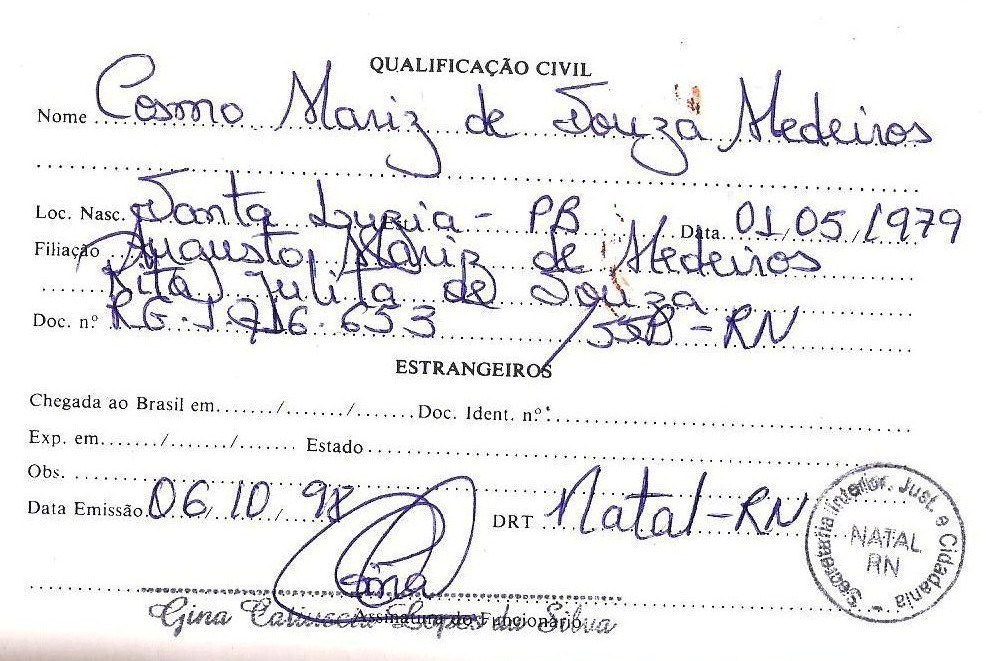 QUALIFICAÇÃO CIVIL
Nome Cosmo Mariz de Souza Medeiros
Loc. Nasc. Santa Luzia - PB Data 01/05/1979
Filiação Augusto Mariz de Medeiros
Rita Julita de Souza
Doc. n.º RG. 1.716.653 / SSP - RN
ESTRANGEIROS
Chegada ao Brasil em......./......./....... Doc. Ident. n.º
Exp. em......./......./....... Estado
Obs.
Data Emissão 06/10/98 DRT Natal-RN
Gina
Gina Lopes da Silva
Assinatura do Funcionário
Secretaria Interior. Just. e Cidadania -
NATAL
RN